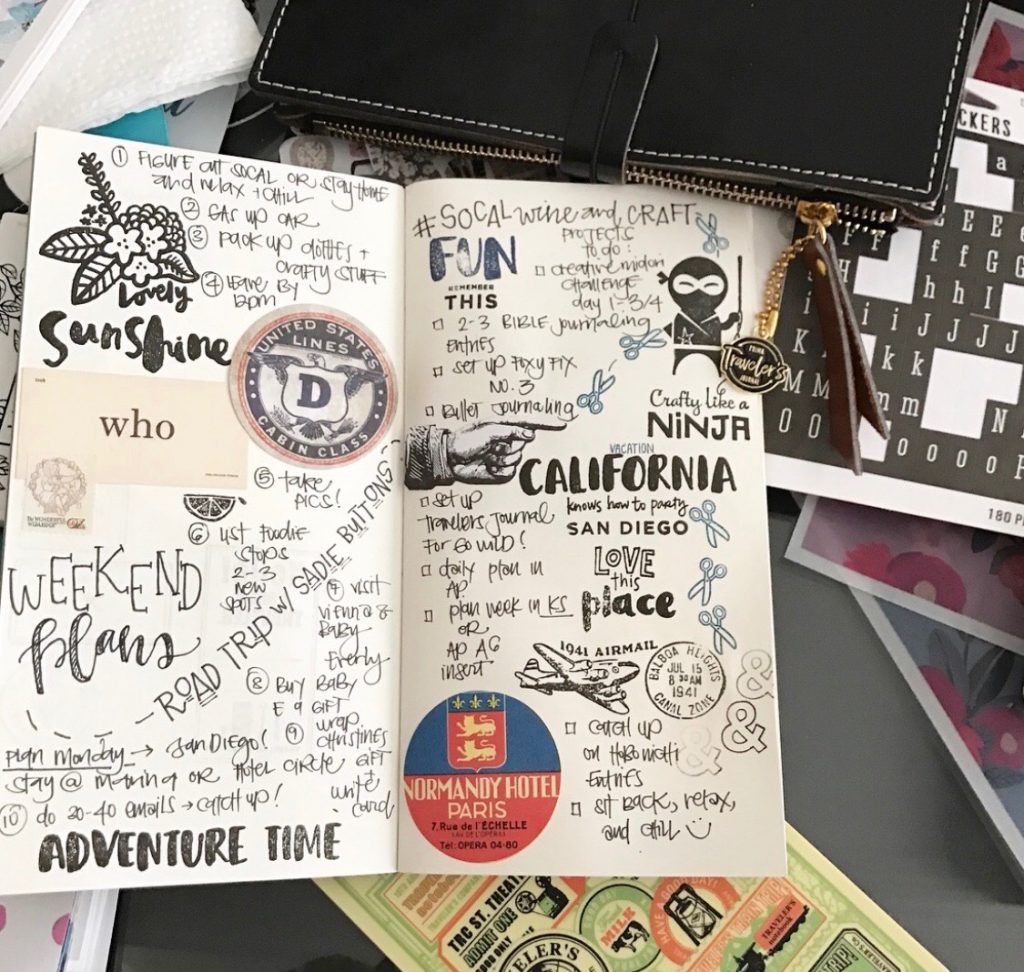 ① FIGURE out SOCAL OR STAY Home
and relax + CHILL
② GAS up CAR
③ pack up clothes +
crafty STUFF
④ leave by
Lovely
sunshine
UNITED STATES
LINES
D
CABIN CLASS
who
⑤ take
PICS!
⑥ LIST foodie
stops
2-3
new
spots
WEEKEND
plans
- ROAD TRIP w/ SADIE BUTTONS -
visit
Baby
Everly
⑧ BUY BABY
E a GIFT
⑨ wrap
christines
GIFT
+
write
card
plan monday → SAN DIEGO!
stay @ OR Hotel circle
⑩ do 20-40 emails → catch up!
ADVENTURE TIME
#SOCALwine and CRAFT
FUN
REMEMBER
THIS
PROJECTS
to do:
creative midori
challenge
day 1-3/4
2-3 BIBLE journaling
entries
set up FOXY FIX
NO. 3
Bullet journaling
Crafty like a
NiNJA
VACATION
CALIFORNIA
knows how to party
SAN DIEGO
set up
travelers journal
for GO WILD!
LOVE
this
place
daily plan in
AP
plan week in KS
OR
AP A6
insert
1941 AIRMAIL
BALBOA HEIGHTS
JUL 15
8 30 AM
1941
CANAL ZONE
&
&
&
NORMANDY HOTEL
PARIS
7, Rue de l'ÉCHELLE
(AV. DE L'OPÉRA)
Tél: OPÉRA 04-80
catch up
on Hobonichi
Entries
sit back, relax,
and chill
TRAVELER'S
JOURNAL
CKERS
a
E E
f f G G
h h I
i i J J J
k k
M M
m m N
O O
o o o o o P
180 P
TRC ST. THEATRE
ADMIT ONE
GOOD ONLY
MILK
HAVE A GOOD DAY!
TRAVELER'S
notebook